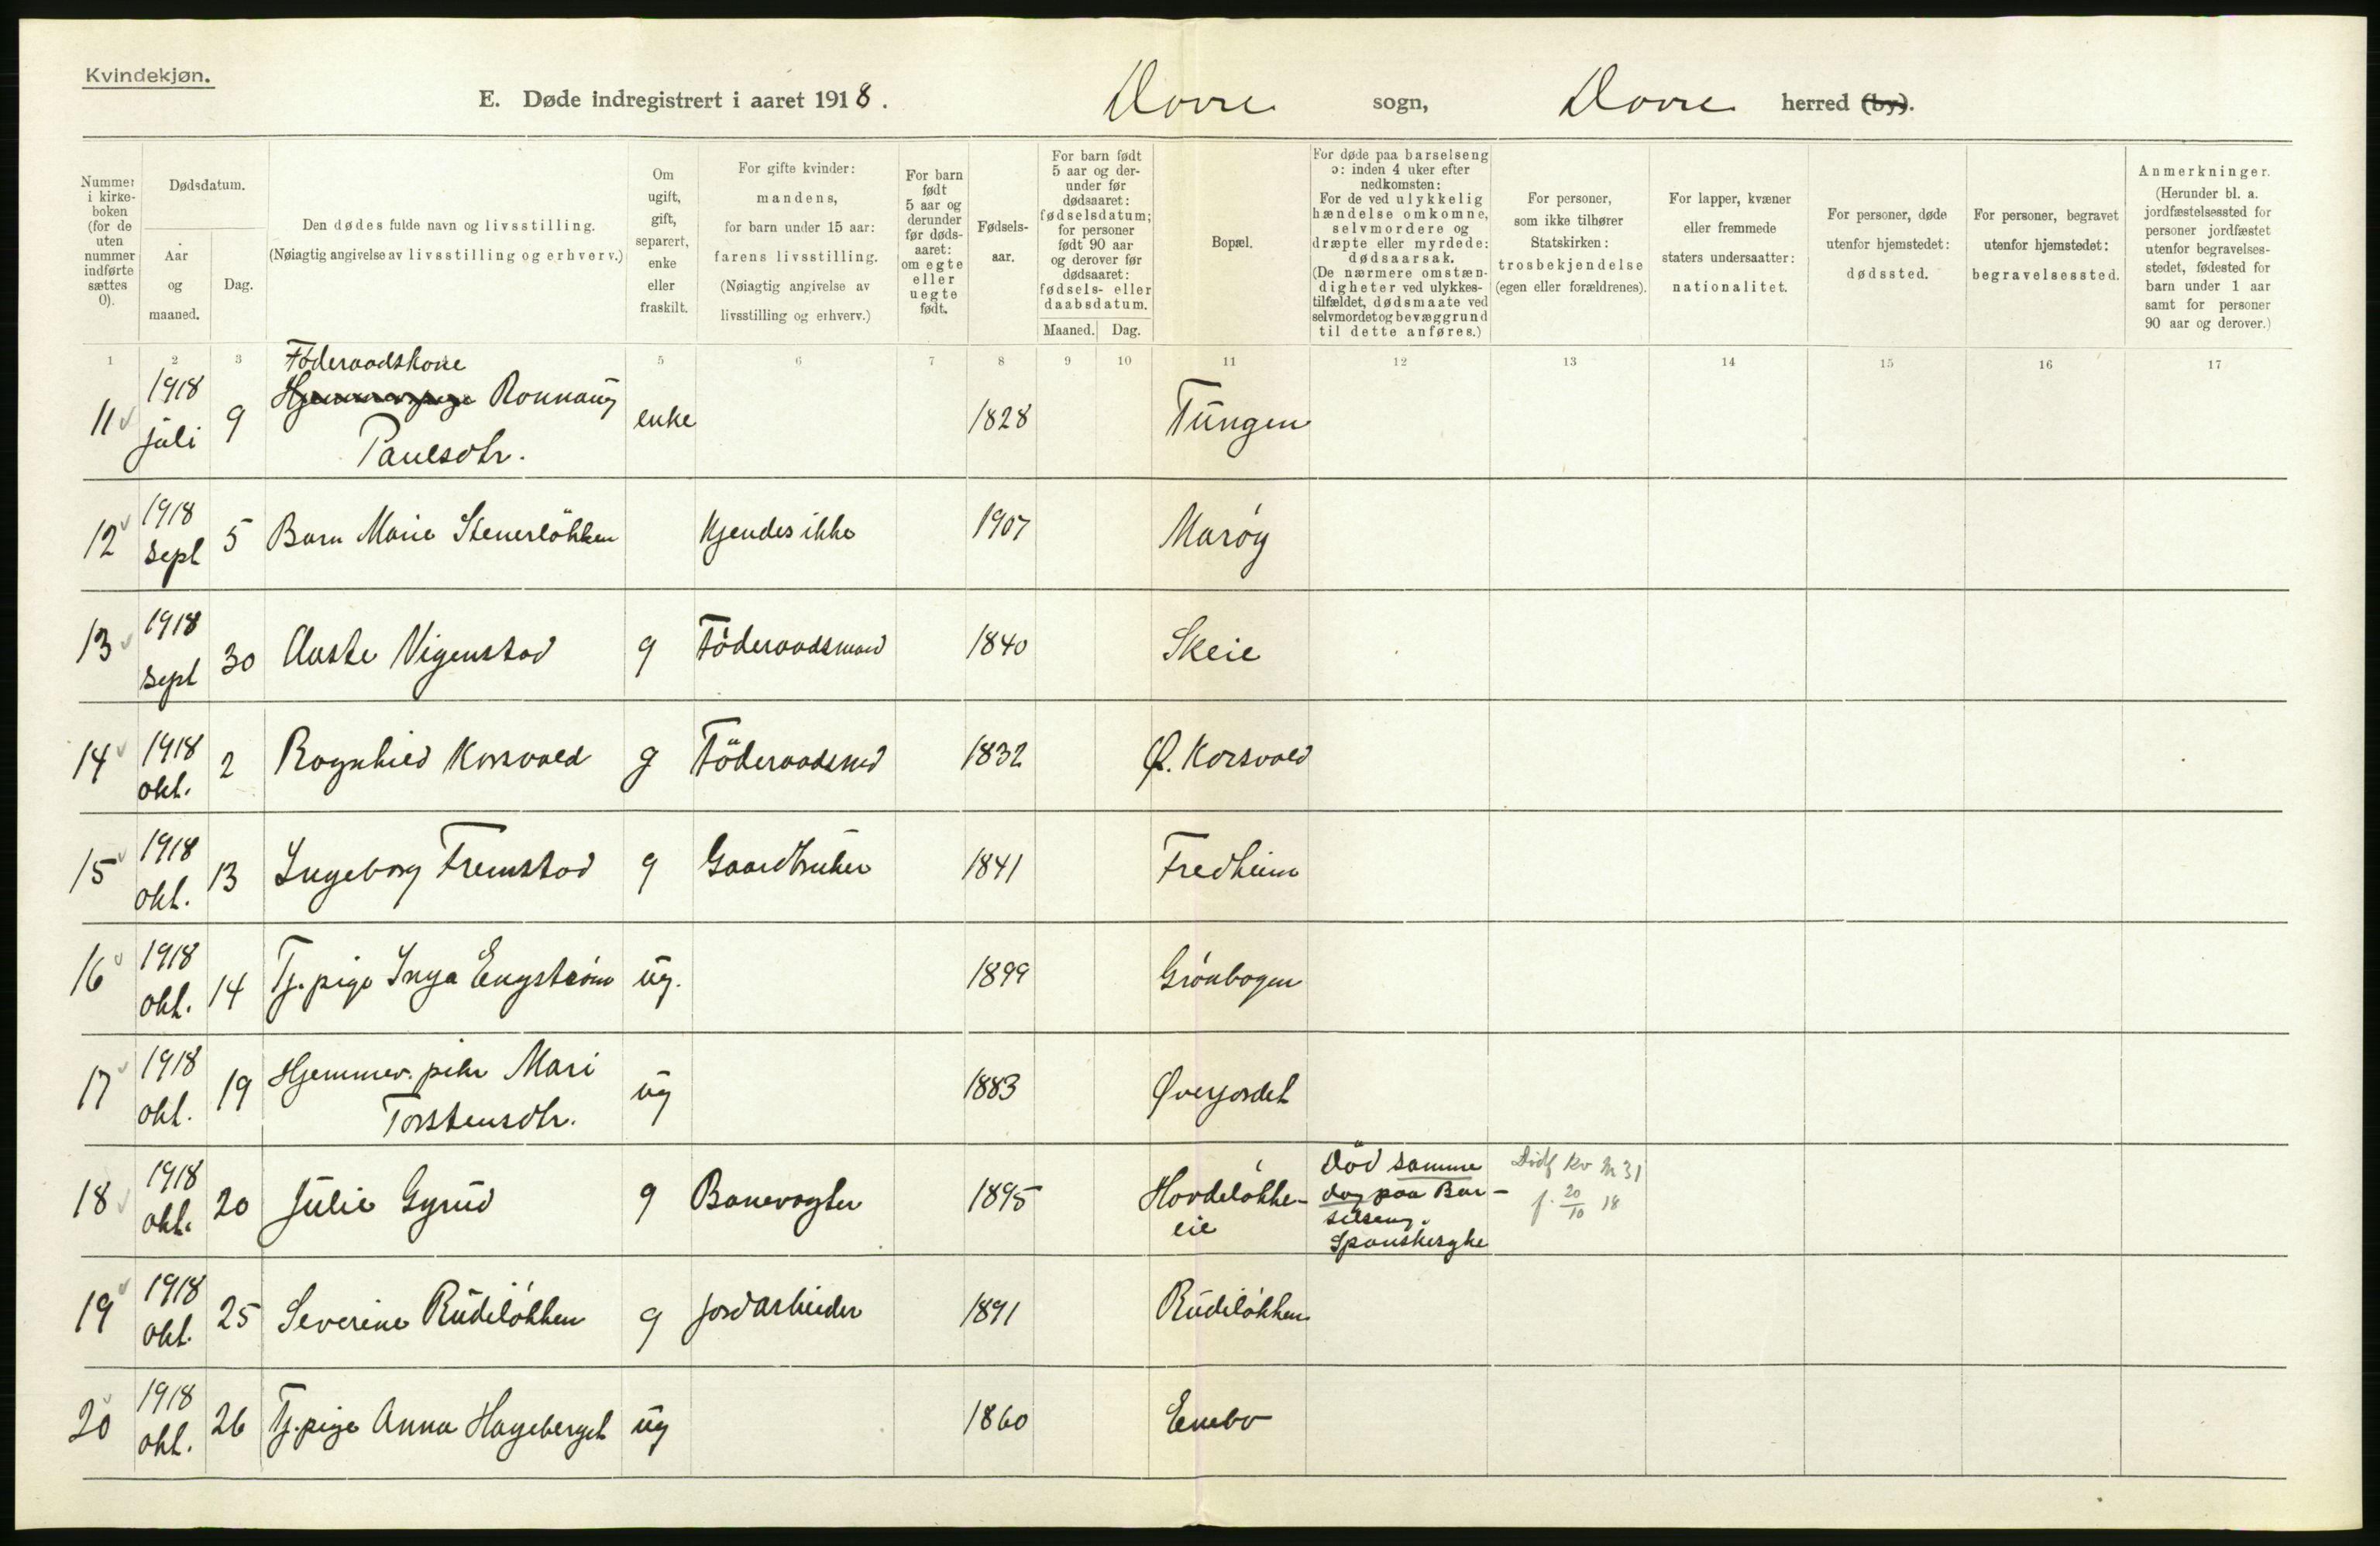 Kvindekjøn.
E. Døde indregistrert i aaret 1918. Dovre sogn, Dovre herred (by).
Nummer i kirkeboken (for de uten nummer indførte sættes 0).
Dødsdatum.
Aar og maaned.
Dag.
Den dødes fulde navn og livsstilling.
(Nøiagtig angivelse av livsstilling og erhverv.)
Om ugift, gift, separert, enke eller fraskilt.
For gifte kvinder: mandens, for barn under 15 aar: farens livsstilling. (Nøiagtig angivelse av livsstilling og erhverv.)
For barn født 5 aar og derunder før dødsaaret: om egte eller uegte født.
Fødselsaar.
For barn født 5 aar og derunder før dødsaaret: fødselsdatum; for personer født 90 aar og derover før dødsaaret: fødsels- eller daabsdatum.
Maaned. Dag.
Bopæl.
For døde paa barselseng ɔ: inden 4 uker efter nedkomsten: For de ved ulykkelig hændelse omkomne, selvmordere og dræpte eller myrdede: dødsaarsak. (De nærmere omstændigheter ved ulykkestilfældet, dødsmaate ved selvmordet og bevæggrund til dette anføres.)
For personer, som ikke tilhører Statskirken: trosbekjendelse (egen eller forældrenes).
For lapper, kvæner eller fremmede staters undersaatter: nationalitet.
For personer, døde utenfor hjemstedet: dødssted.
For personer, begravet utenfor hjemstedet: begravelsessted.
Anmerkninger. (Herunder bl. a. jordfæstelsessted for personer jordfæstet utenfor begravelsesstedet, fødested for barn under 1 aar samt for personer 90 aar og derover.)
1 2 3 5 6 7 8 9 10 11 12 13 14 15 16 17
Föderaadskone
11 1918 juli 9 Hjemmev. pige Ronnaug Paulsdtr. enke 1828 Tungen
12 1918 Sept 5 Barn Marie Stenerløkken Kjendes ikke 1907 Marøy
13 1918 Sept 30 Aaste Vigenstad g Föderaadsmand 1840 Skeie
14 1918 okt. 2 Ragnhild Korsvold g Föderaadsmd 1832 Ø. Korsvold
15 1918 okt. 13 Ingeborg Fremstad g Gaardbruker 1841 Fredheim
16 1918 okt. 14 Tj. pige Inga Engström ug. 1899 Grönbogen
17 1918 okt. 19 Hjemmev. pike Mari Torstensdtr. ug 1883 Øverjordet
18 1918 okt. 20 Julie Gyrud g Banevogter 1895 Hovdeløkkeeie Död samme dag paa Barselseng. Spanskesyke Dødf kv № 31 f. 20/10 18
19 1918 okt. 25 Severine Rudiløkken g Jordarbeider 1891 Rudiløkken
20 1918 okt. 26 Tj. pige Anna Hageberget ug 1860 Enebo